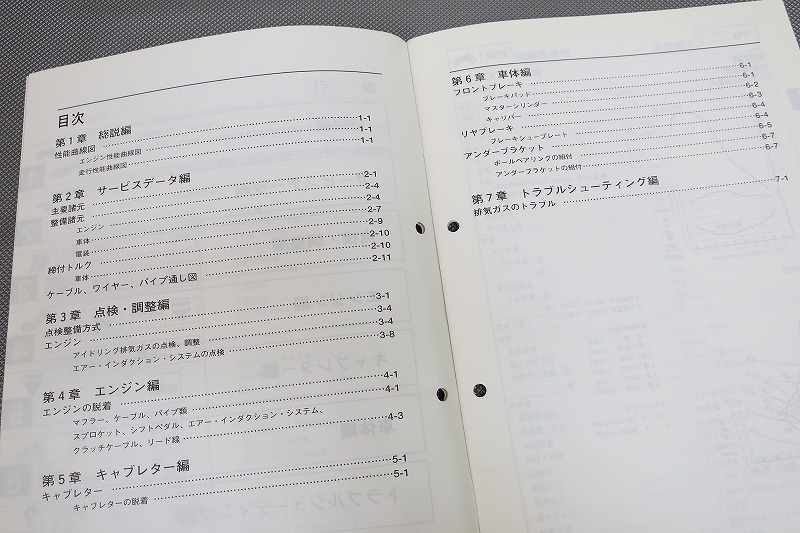 目次
第1章 総説編
性能曲線図 1-1
エンジン性能曲線図 1-1
走行性能曲線図 1-1
第2章 サービスデータ編
主要諸元 2-1
整備諸元 2-4
エンジン 2-4
車体 2-7
電装 2-9
締付トルク 2-10
車体 2-10
ケーブル、ワイヤー、パイプ通し図 2-11
第3章 点検・調整編
点検整備方式 3-1
エンジン 3-4
アイドリング排気ガスの点検、調整 3-4
エアー・インダクション・システムの点検 3-8
第4章 エンジン編
エンジンの脱着 4-1
マフラー、ケーブル、パイプ類 4-1
スプロケット、シフトペダル、エアー・インダクション・システム、
クラッチケーブル、リード線 4-3
第5章 キャブレター編
キャブレター 5-1
キャブレターの脱着 5-1
第6章 車体編
フロントブレーキ 6-1
ブレーキパッド 6-1
マスターシリンダー 6-2
キャリパー 6-3
リヤブレーキ 6-4
ブレーキシュープレート 6-4
アンダーブラケット 6-5
ボールベアリングの組付 6-7
アンダーブラケットの組付 6-7
第7章 トラブルシューティング編
排気ガスのトラブル 7-1